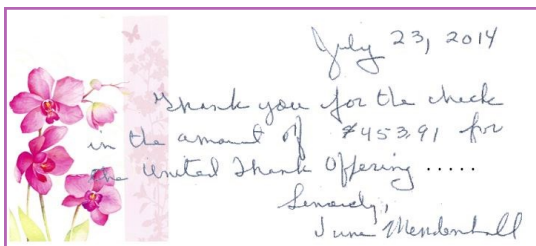 July 23, 2014
Thank you for the check
in the amount of $453.91 for
the United Thank Offering .....
Sincerely,
June Mendenhall